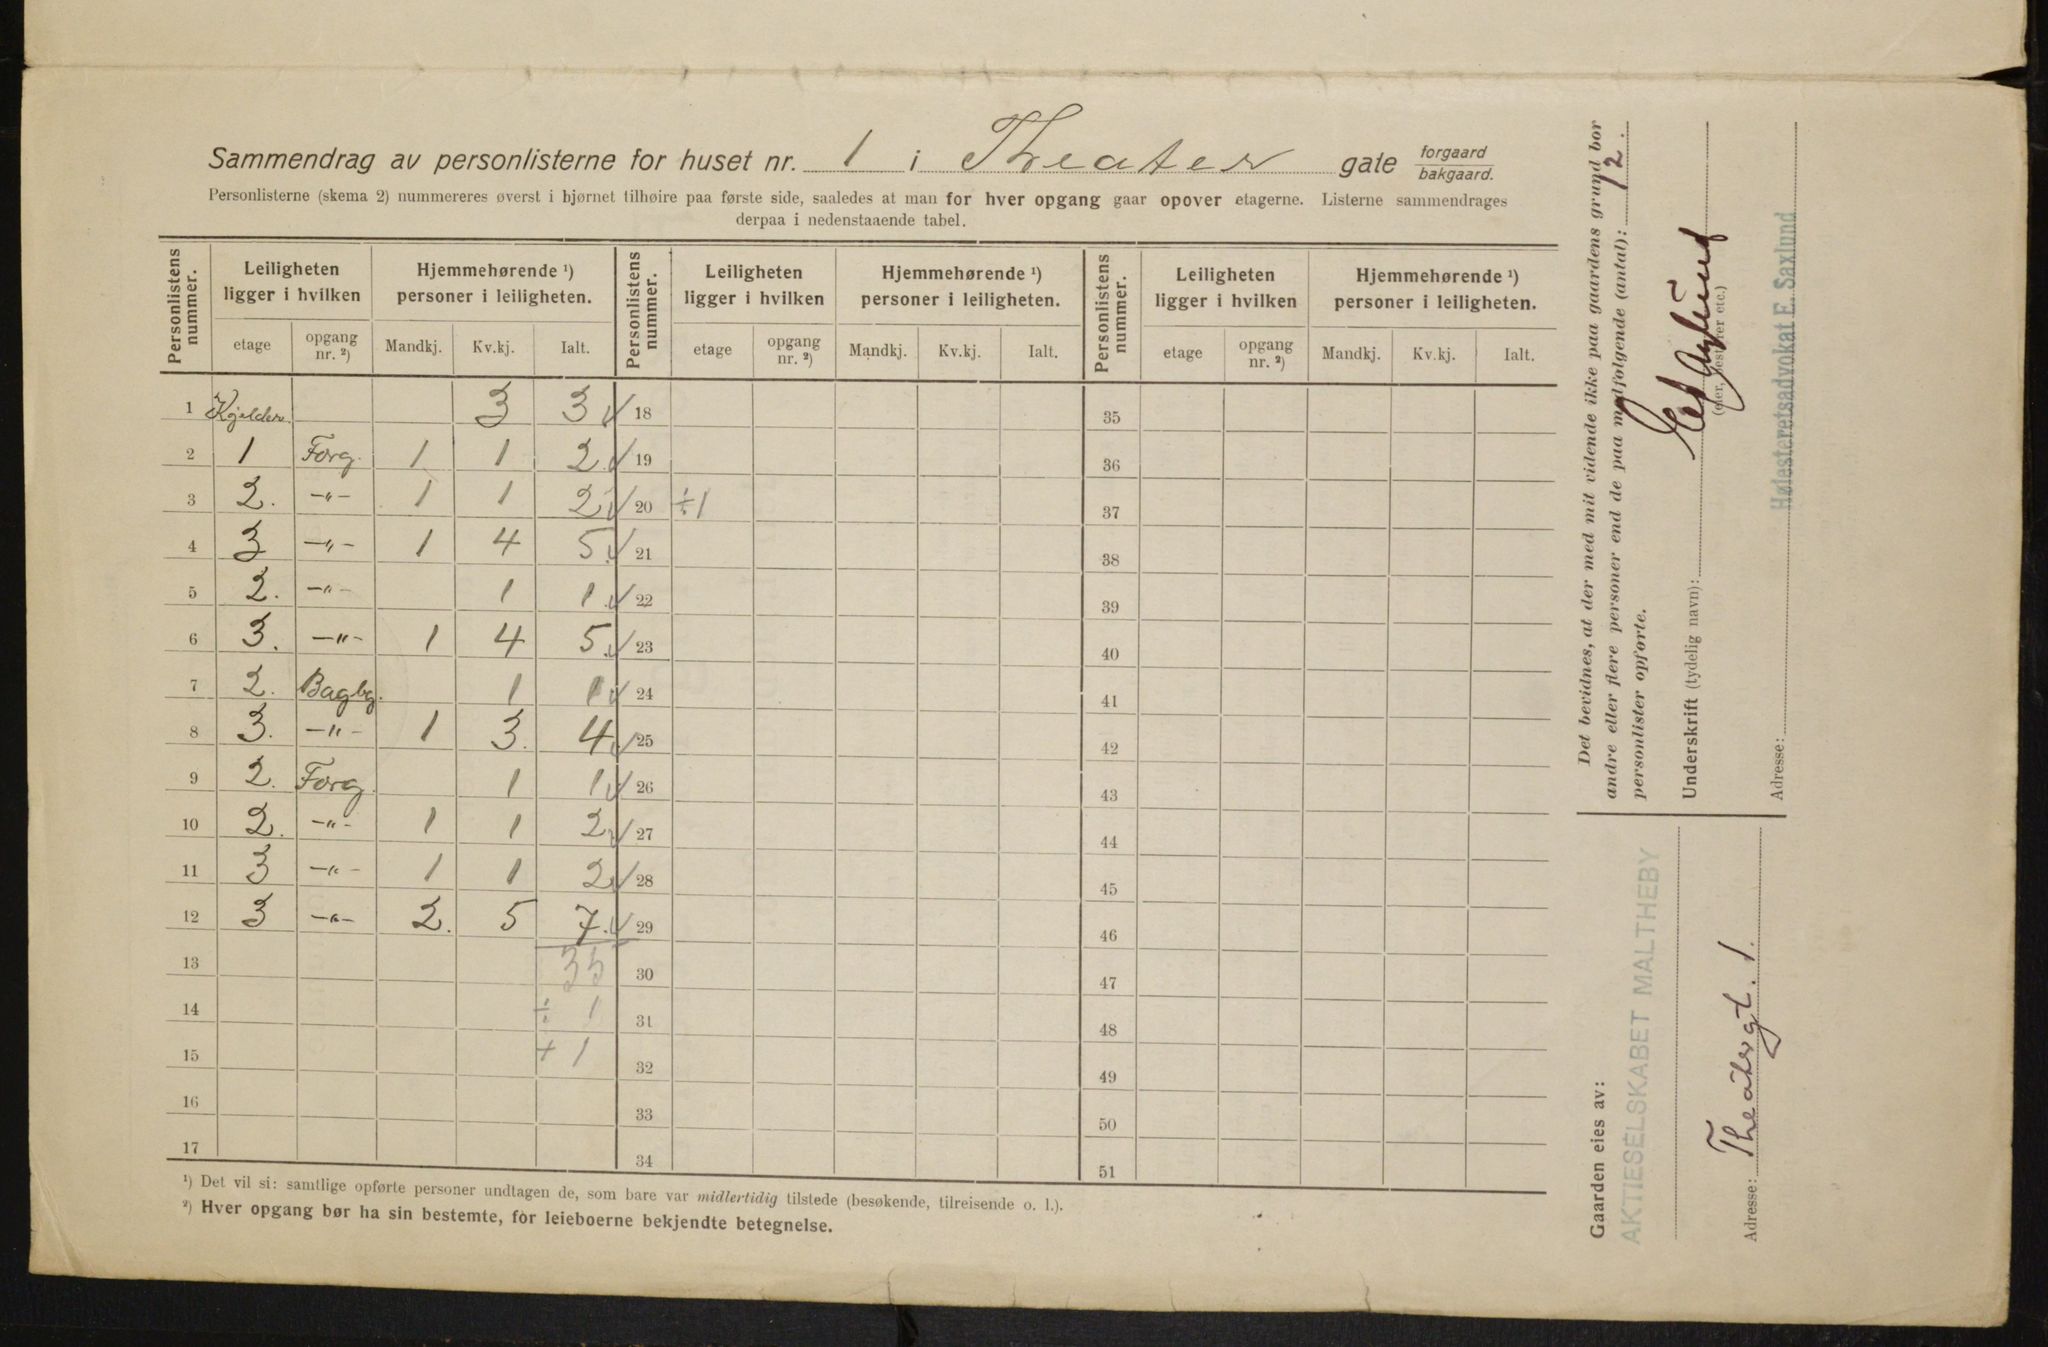 Sammendrag av personlisterne for huset nr. 1 i Theater gate forgaard bakgaard.
Personlisterne (skema 2) nummereres øverst i hjørnet tilhøire paa første side, saaledes at man for hver opgang gaar opover etagerne. Listerne sammendrages
derpaa i nedenstaaende tabel.
Personlistens nummer. Leiligheten ligger i hvilken Hjemmehørende ¹) personer i leiligheten. Personlistens nummer. Leiligheten ligger i hvilken Hjemmehørende ¹) personer i leiligheten. Personlistens nummer. Leiligheten ligger i hvilken Hjemmehørende ¹) personer i leiligheten.
etage opgang nr. ²) Mandkj. Kv.kj. Ialt. etage opgang nr. ²) Mandkj. Kv.kj. Ialt. etage opgang nr. ²) Mandkj. Kv.kj. Ialt.
1 Kjelder 3 3 √ 18 35
2 1 Forg. 1 1 2. √ 19 36
3 2. -"- 1 1 2 √ 20 ÷1 37
4 3 -"- 1 4 5. √ 21 38
5 2. -"- 1 1. √ 22 39
6 3. -"- 1 4 5. √ 23 40
7 2. Bagbg. 1 1 √ 24 41
8 3. -"- 1 3. 4 √ 25 42
9 2. Forg. 1 1 √ 26 43
10 2. -"- 1 1 2 √ 27 44
11 3 -"- 1 1 2 √ 28 45
12 3 -"- 2. 5 7. √ 29 46
13 35 30 47
14 ÷ 1 31 48
15 + 1 32 49
16 33 50
17 34 51
¹) Det vil si: samtlige opførte personer undtagen de, som bare var midlertidig tilstede (besøkende, tilreisende o. l.).
²) Hver opgang bør ha sin bestemte, for leieboerne bekjendte betegnelse.
Det bevidnes, at der med mit vidende ikke paa gaardens grund bor
andre eller flere personer end de paa medfølgende (antal): 12.
personlister opførte.
Underskrift (tydelig navn):
(eier, bestyrer etc.)
Høiesteretsadvokat E. Saxlund
Adresse:
Gaarden eies av:
AKTIESELSKABET MALTHEBY
Adresse: Theatergt. 1.